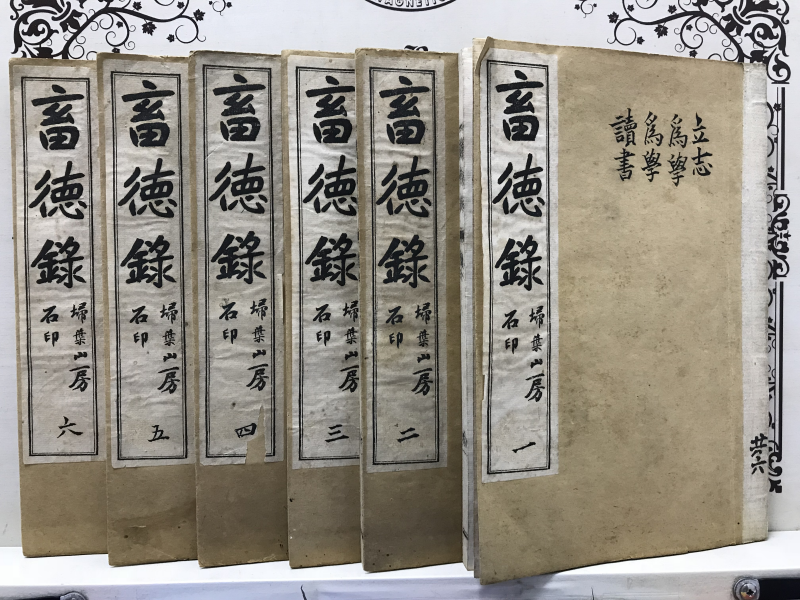 立志
爲學
爲學
讀書
畜德錄
埽葉山房
石印
一
畜德錄
埽葉山房
石印
二
畜德錄
埽葉山房
石印
三
畜德錄
埽葉山房
石印
四
畜德錄
埽葉山房
石印
五
畜德錄
埽葉山房
石印
六